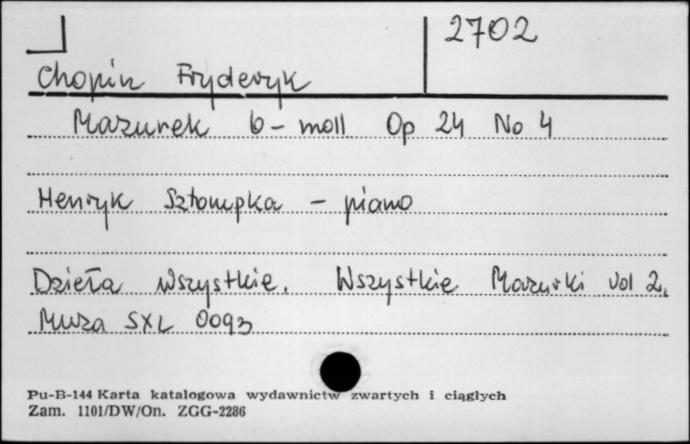 2702
Chopin Fryderyk
Mazurek b-moll Op 24 No 4
Henryk Sztompka - piano
Dzieła wszystkie. Wszystkie Mazurki vol 2.
Muza SXL 0093
Pu-B-144 Karta katalogowa wydawnictw zwartych i ciągłych
Zam. 1101/DW/On. ZGG-2286